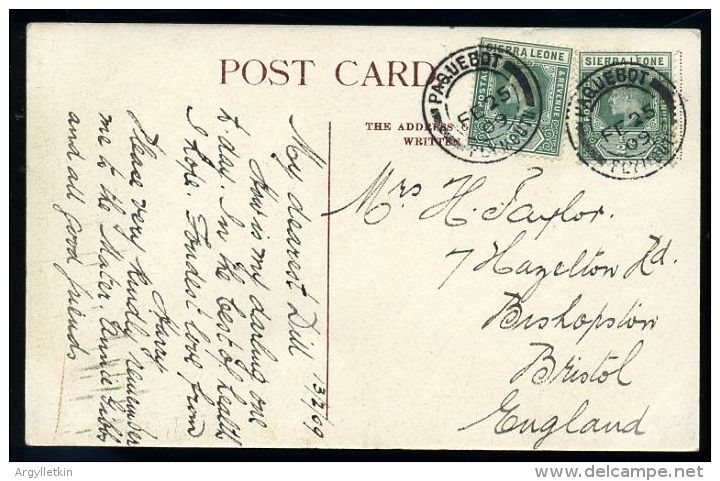 POST CARD
THE ADDRESS O
WRITTEN
SIERRA LEONE
POSTAGE
& REVENUE
SIERRA LEONE
PAQUEBOT
FE 25
09
PLYMOUTH
PAQUEBOT
FE 25
09
PLYMOUTH
My dearest Dill 13/2/09
How is my darling one
to day. In the best of health
I hope. Fondest love from
Harry
Please very kindly remember
me to the Mater, Annie Gibbs
and all good friends
Mrs H. Taylor.
7 Hazelton Rd.
Bishopston
Bristol
England
Argylletkin
delcampe.net